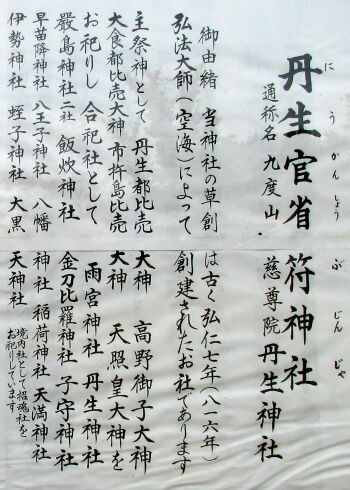 丹生官省符神社
にうかんしょうぶじんじゃ
通称名 九度山 慈尊院丹生神社
御由緒 当神社の草創は古く弘仁七年(八一六年)
弘法大師(空海)によって創建されたお社であります
主祭神として 丹生都比売大神 高野御子大神
大食都比売大神 市杵島比売大神 天照皇大神を
お祀りし 合祀社として 雨宮神社 丹生神社
厳島神社二社 飯炊神社 金刀比羅神社 子守神社
早苗降神社 八王子神社 八幡神社 稲荷神社 天満神社
伊勢神社 蛭子神社 大黒天神社 境内社として招魂社を
お祀りしています